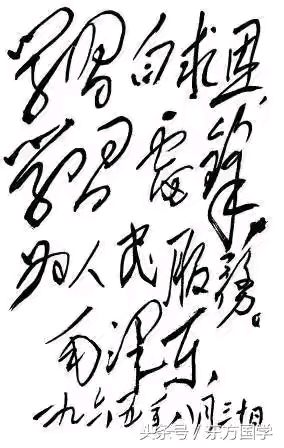 学习白求恩，
学习雷锋，
为人民服务。
毛泽东
一九六五年八月三十日
头条号/东方国学